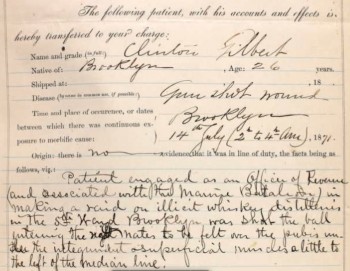 The following patient, with his accounts and effects is
hereby transferred to your charge:
Name and grade (in full) Clinton Gilbert
Native of: Brooklyn, Age: 26 years.
Shipped at: , 18
Disease Gun shot wound
Time and place of occurrence, or dates Brooklyn
between which there was continuous ex-
posure to morbific cause: 14th July (2 to 4 AM), 1871.
Origin: there is no evidence that it was in line of duty, the facts being as
follows, viz.:
Patient engaged as an Officer of Revenue
(and associated with the Marine Batalion) in
making a raid on illicit whiskey distilleries
in the 5th Ward Brooklyn was shot the ball
entering the nates to be felt over the pubis un-
der the integument & superficial muscles a little to
the left of the median line.